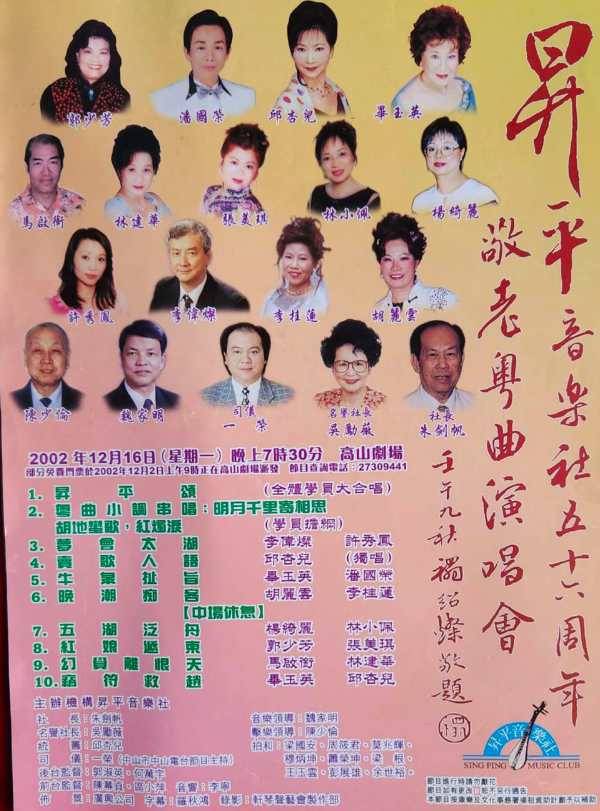 昇平音樂社五十六周年
敬老粵曲演唱會
壬午九秋 禤紹燦敬題
郭少芳 潘國榮 邱杏兒 畢玉英
馬啟衡 林建華 張美琪 林小佩 楊綺麗
許秀鳳 李偉燦 李桂蓮 胡麗雲
陳少倫 魏家明 司儀 一榮 名譽社長 吳勵薇 社長 朱劍帆
2002年12月16日(星期一) 晚上7時30分 高山劇場
部分免費門票於2002年12月2日上午9時正在高山劇場派發 節目查詢電話:27309441
1. 昇平頌 (全體學員大合唱)
2. 粵曲小調串唱:明月千里寄相思
胡地蠻歌,紅燭淚 (學員擔綱)
3. 夢會太湖 李偉燦 許秀鳳
4. 賣歌人語 邱杏兒 (獨唱)
5. 牛皋扯旨 畢玉英 潘國榮
6. 晚潮痴客 胡麗雲 李桂蓮
【中場休息】
7. 五湖泛舟 楊綺麗 林小佩
8. 紅娘遞柬 郭少芳 張美琪
9. 幻覺離恨天 馬啟衡 林建華
10. 竊符救趙 畢玉英 邱杏兒
主辦機構昇平音樂社
社長:朱劍帆 音樂領導:魏家明
名譽社長:吳勵薇 擊樂領導:陳少倫
統籌:邱杏兒 拍和:梁國安、周筱君、莫兆輝、
司儀:一榮(中山市中山電台節目主持) 穆炳坤、蕭榮坤、梁根、
後台監督:郭淑英、何萬宇 王玉雲、彭展雄、余世裕。
前台監督:陳幕貞、區小萍 音響:李寧
佈景:廣興公司 字幕:羅秋鴻 錄影:軒琴聲藝會製作部
昇平音樂社
SING PING MUSIC CLUB
節目進行時請勿獻花
節目如有更改,恕不另行通告
本節目獲康樂及文化事務署場租資助計劃予以補助